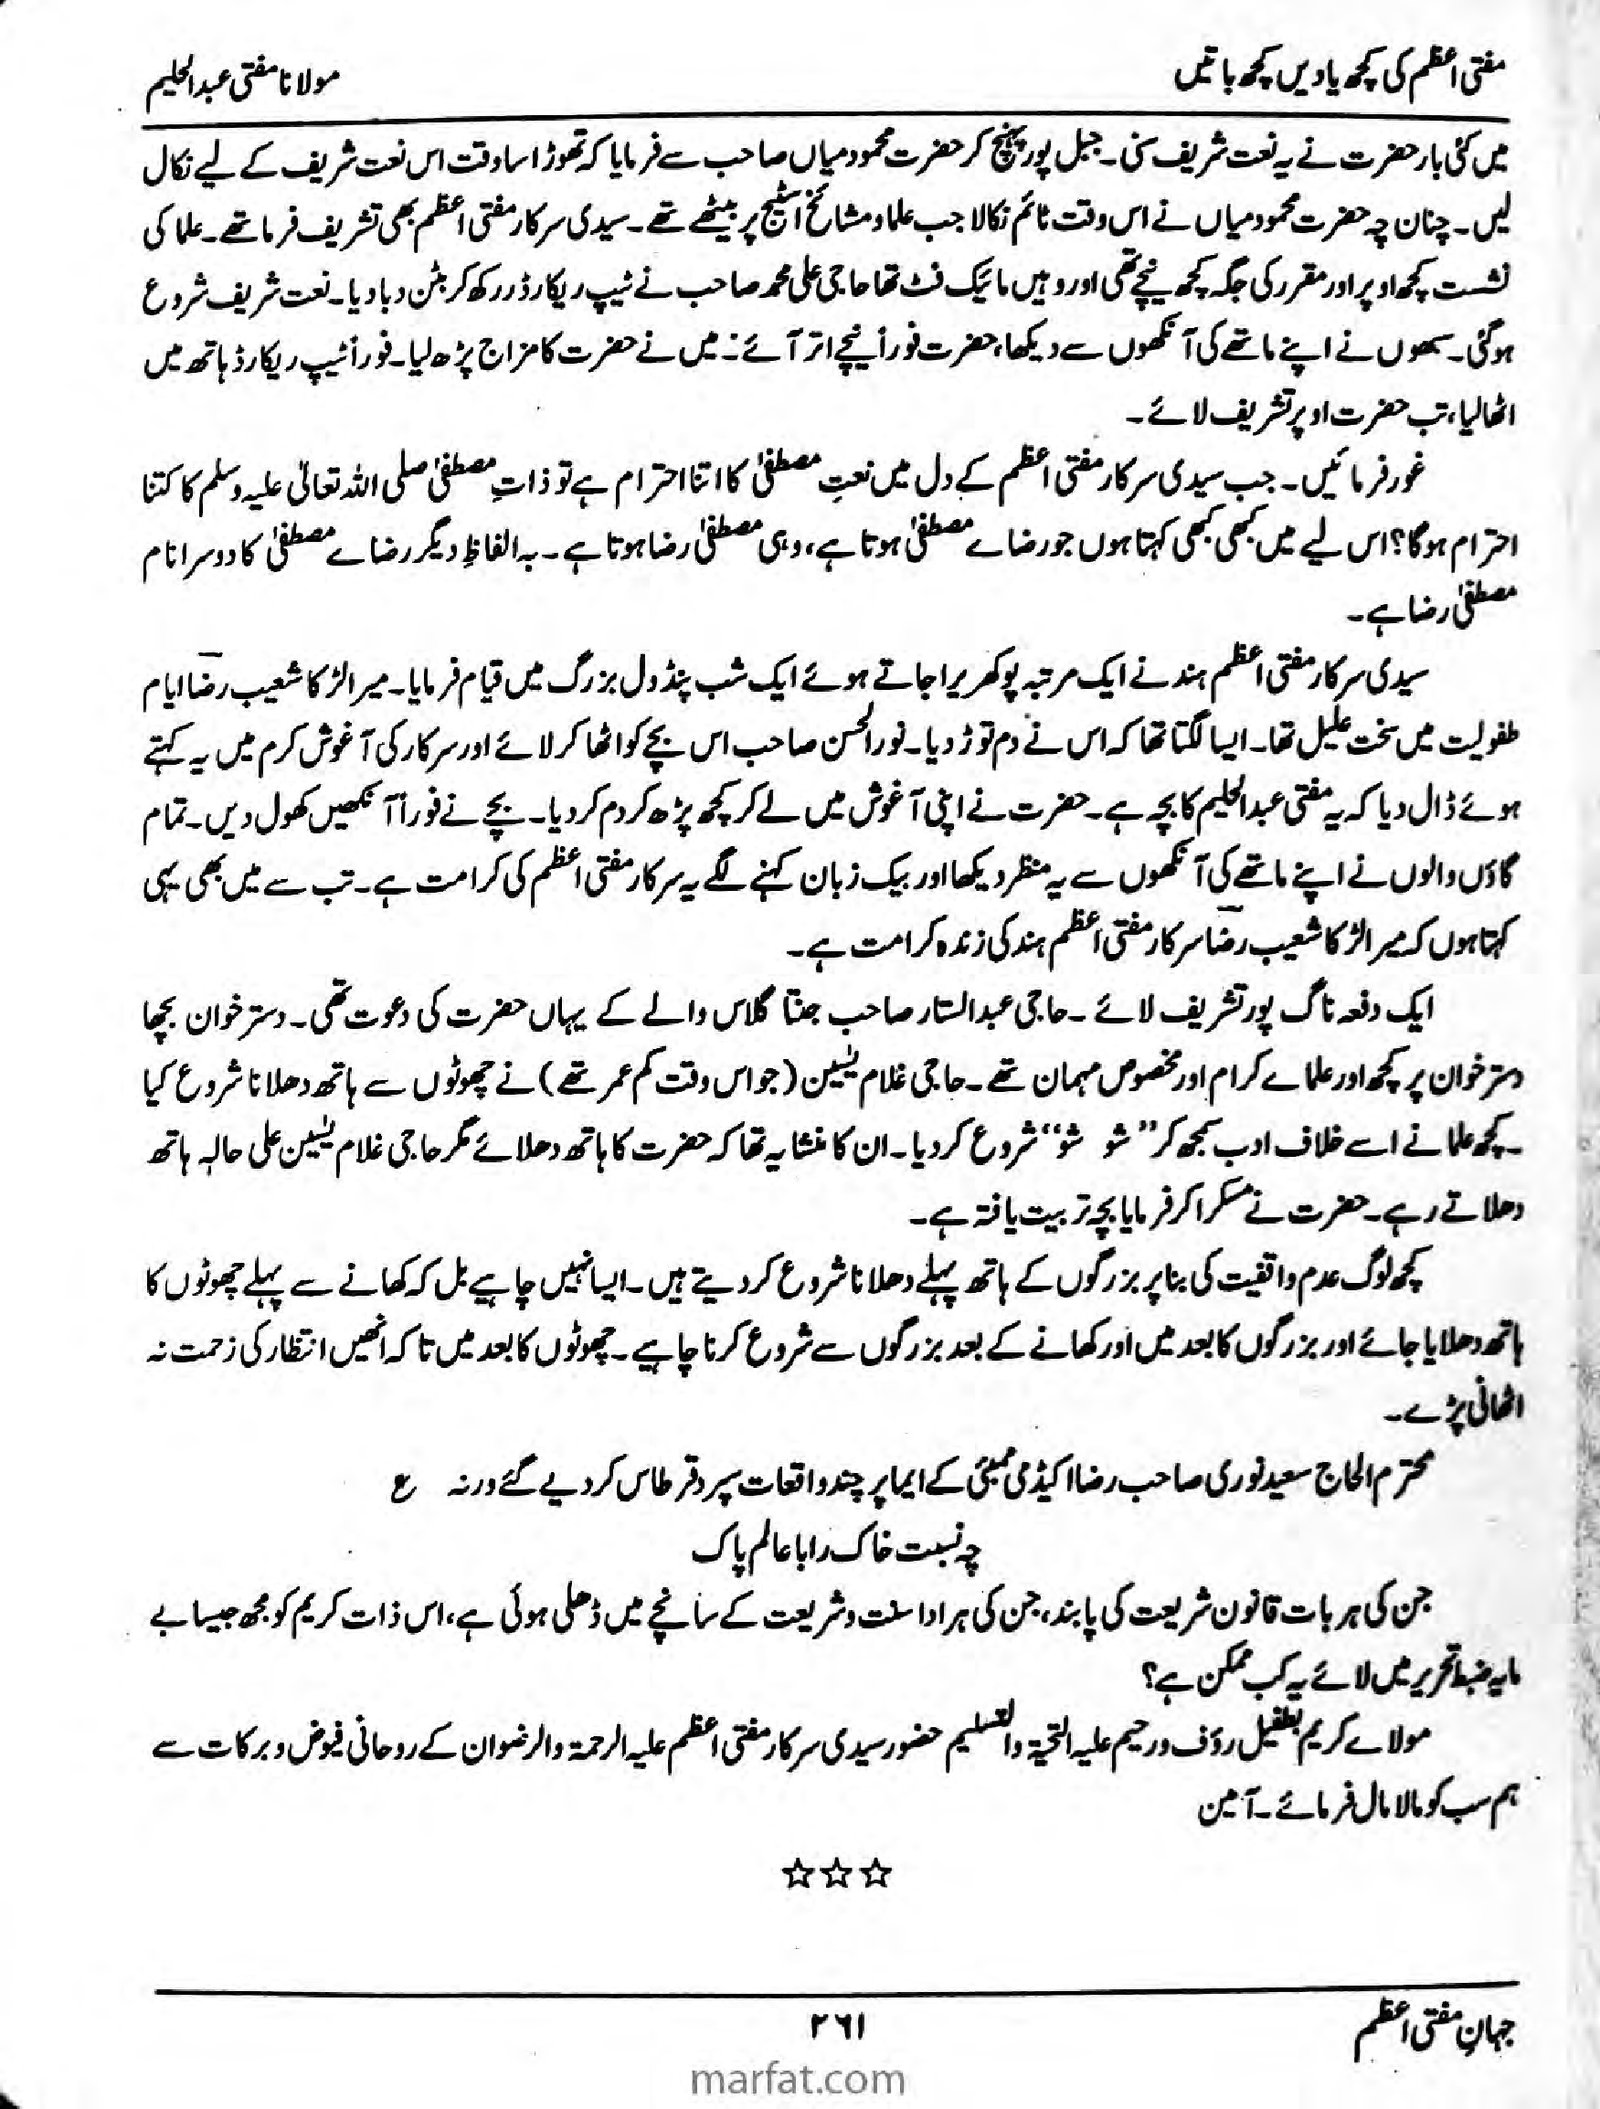 مفتی اعظم کی کچھ یادیں کچھ باتیں
مولانا مفتی عبدالحلیم
میں کئی بار حضرت نے یہ نعت شریف سنی۔ جبل پور پہنچ کر حضرت محمود میاں صاحب سے فرمایا کہ تھوڑا سا وقت اس نعت شریف کے لیے نکال
لیں۔ چنان چہ حضرت محمود میاں نے اس وقت ٹائم نکالا جب علما و مشائخ اسٹیج پر بیٹھے تھے۔ سیدی سرکار مفتی اعظم بھی تشریف فرما تھے۔ علما کی
نشست کچھ اوپر اور مقرر کی جگہ کچھ نیچے تھی اور وہیں مائیک فٹ تھا حاجی علی محمد صاحب نے ٹیپ ریکارڈر رکھ کر بٹن دبا دیا۔ نعت شریف شروع
ہوگئی۔ سبھوں نے اپنے ماتھے کی آنکھوں سے دیکھا، حضرت فوراً نیچے اتر آئے۔ میں نے حضرت کا مزاج پڑھ لیا۔ فوراً ٹیپ ریکارڈ ہاتھ میں
اٹھا لیا، تب حضرت اوپر تشریف لائے۔
غور فرمائیں۔ جب سیدی سرکار مفتی اعظم کے دل میں نعتِ مصطفیٰ کا اتنا احترام ہے تو ذاتِ مصطفیٰ صلی اللہ تعالیٰ علیہ وسلم کا کتنا
احترام ہوگا؟ اس لیے میں کبھی کبھی کہتا ہوں جو رضاے مصطفیٰ ہوتا ہے، وہی مصطفیٰ رضا ہوتا ہے۔ بہ الفاظِ دیگر رضاے مصطفیٰ کا دوسرا نام
مصطفیٰ رضا ہے۔
سیدی سرکار مفتی اعظم ہند نے ایک مرتبہ پوکھریرا جاتے ہوئے ایک شب پنڈول بزرگ میں قیام فرمایا۔ میرا لڑکا شعیب رضا ایام
طفولیت میں سخت علیل تھا۔ ایسا لگتا تھا کہ اس نے دم توڑ دیا۔ نور الحسن صاحب اس بچے کو اٹھا کر لائے اور سرکار کی آغوش کرم میں یہ کہتے
ہوئے ڈال دیا کہ یہ مفتی عبدالحلیم کا بچہ ہے۔ حضرت نے اپنی آغوش میں لے کر کچھ پڑھ کر دم کر دیا۔ بچے نے فوراً آنکھیں کھول دیں۔ تمام
گاؤں والوں نے اپنے ماتھے کی آنکھوں سے یہ منظر دیکھا اور بیک زبان کہنے لگے یہ سرکار مفتی اعظم کی کرامت ہے۔ تب سے میں بھی یہی
کہتا ہوں کہ میرا لڑکا شعیب رضا سرکار مفتی اعظم ہند کی زندہ کرامت ہے۔
ایک دفعہ ناگ پور تشریف لائے۔ حاجی عبدالستار صاحب جنتا گلاس والے کے یہاں حضرت کی دعوت تھی۔ دسترخوان بچھا
دسترخوان پر کچھ اور علماے کرام اور مخصوص مہمان تھے۔ حاجی غلام یٰسین (جو اس وقت کم عمر تھے) نے چھوٹوں سے ہاتھ دھلانا شروع کیا
۔ کچھ علما نے اسے خلاف ادب سمجھ کر ”شو شو“ شروع کر دیا۔ ان کا منشا یہ تھا کہ حضرت کا ہاتھ دھلائے مگر حاجی غلام یٰسین علی حالہ ہاتھ
دھلاتے رہے۔ حضرت نے مسکرا کر فرمایا بچہ تربیت یافتہ ہے۔
کچھ لوگ عدم واقفیت کی بنا پر بزرگوں کے ہاتھ پہلے دھلانا شروع کر دیتے ہیں۔ ایسا نہیں چاہیے بل کہ کھانے سے پہلے چھوٹوں کا
ہاتھ دھلایا جائے اور بزرگوں کا بعد میں اور کھانے کے بعد بزرگوں سے شروع کرنا چاہیے۔ چھوٹوں کا بعد میں تا کہ انھیں انتظار کی زحمت نہ
اٹھانی پڑے۔
محترم الحاج سعید نوری صاحب رضا اکیڈمی ممبئی کے ایما پر چند واقعات سپرد قرطاس کر دیے گئے ورنہ ع
چہ نسبت خاک را با عالم پاک
جن کی ہر بات قانون شریعت کی پابند، جن کی ہر ادا سنت و شریعت کے سانچے میں ڈھلی ہوئی ہے، اس ذات کریم کو مجھ جیسا بے
مایہ ضبط تحریر میں لائے یہ کب ممکن ہے؟
مولاے کریم بطفیل رؤف و رحیم علیہ التحیۃ والتسلیم حضور سیدی سرکار مفتی اعظم علیہ الرحمۃ والرضوان کے روحانی فیوض و برکات سے
ہم سب کو مالا مال فرمائے۔ آمین
☆☆☆
جہانِ مفتی اعظم
۲۶۱
marfat.com